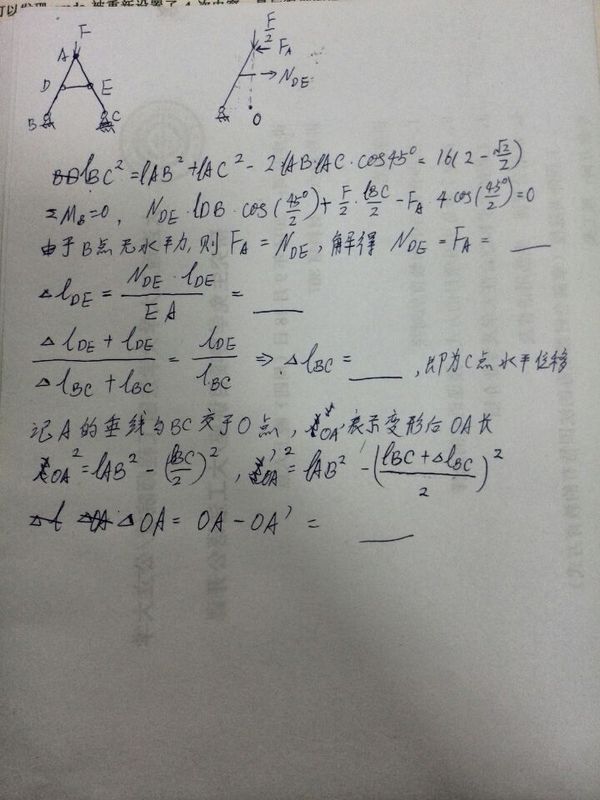 F
A
D E
B C
F/2
F_A
N_DE
O
l_BC² = l_AB² + l_AC² - 2 l_AB·l_AC·cos45° = 16(2 - √2/2)
ΣM_B=0, N_DE·l_DB·cos(45°/2) + F/2·l_BC/2 - F_A 4·cos(45°/2)=0
由于B点无水平力,则 F_A = N_DE, 解得 N_DE = F_A = ___
Δl_DE = N_DE·l_DE / EA = ___
(Δl_DE + l_DE)/(Δl_BC + l_BC) = l_DE/l_BC ⇒ Δl_BC = ___, 即为C点水平位移
记A的垂线与BC交于O点, OA' 表示变形后OA长
OA² = l_AB² - (l_BC/2)², OA'² = l_AB² - ((l_BC + Δl_BC)/2)²
ΔOA = OA - OA' = ___